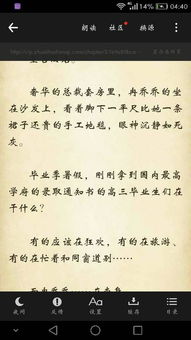 04:40
朗读 社区 换源
奢华的总裁套房里，冉乔乔的坐
在沙发上，看着脚下一平尺比她一条
裙子还贵的手工地毯，眼神沉静如死
灰。
毕业季暑假，刚刚拿到国内最高
学府的录取通知书的高三毕业生们在
干什么？
有的应该在狂欢，有的在旅游、
有的在忙着和同窗道别……
夜间 反馈 设置 缓存 目录